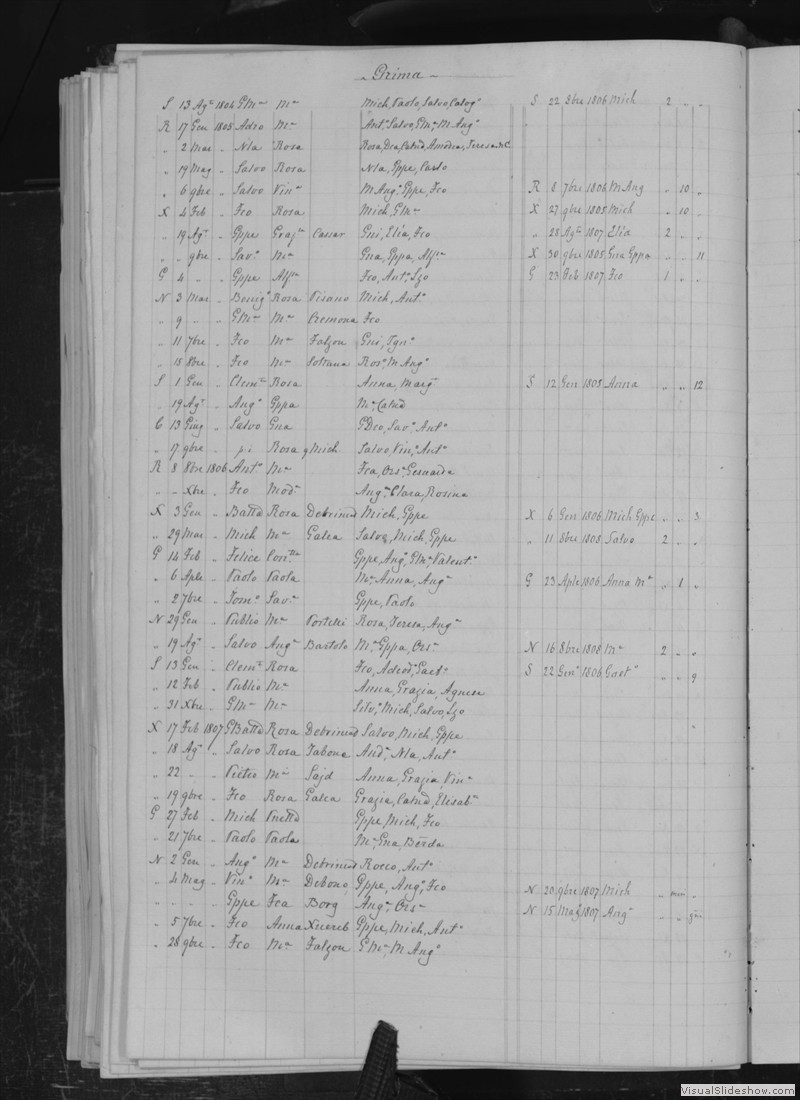 Grima
S 13 Agto 1804 GMa Ma Mich, Paolo, Salvo, Calogo S 22 8bre 1806 Mich 2 " "
R 17 Gen 1805 Adeo Ma Anto, Salvo, GMa, M Ango
" 2 Mar " Nla Rosa Rosa, Catnd, Teresa
" 19 Mag " Salvo Rosa Nla, Gppe,
" 6 9bre " Salvo Vina M Ango, Gppe, Fco R 8 7bre 1806 M Ang " 10 "
X 4 Feb " Fco Rosa Mich, GMa X 27 9bre 1805 Mich " 10 "
" 19 Agto " Gppe Graza Cassar Gni, Elia, Fco " 20 Agto 1807 Elia 2 " "
" " 9bre " Savo Ma Gna, Gppa, Alfa X 30 9bre 1805 Gna Gppa " " 11
G 4 " " Gppe Alfa Fco, Anto, Lzo G 23 Feb 1807 Fco 1 " "
N 3 Mar " Benigo Rosa Pisano Mich, Anto
" 9 " " GMa Ma Cremona Fco
" 11 7bre " Fco Ma Falzon Gni, Igno
" 15 8bre " Fco Ma Soltana Roso, M Ango
S 1 Gen " Clemte Rosa Anna, Marga S 12 Gen 1805 Anna " " 12
" 19 Agto " Ango Gppa Ma, Catnd
C 13 Giug " Salvo Gna GDco, Savo, Anto
" 17 9bre " pi Rosa q Mich Salvo, Vino, Anto
R 8 8bre 1806 Anto Ma Fca, Orsa, Genarda
" " Xbre " Fco Moda Anga, Clara, Rosina
X 3 Gen " Batta Rosa Debrincat Mich, Gppe X 6 Gen 1806 Mich Gppe " " 3
" 29 Mar " Mich Ma Galea Salvo, Mich, Gppe " 11 8bre 1808 Salvo 2 " "
G 14 Feb " Felice Gppe, Ango, GMa, Valento
" 6 Aple " Paolo Paola Ma, Anna, Anga G 23 Aple 1806 Anna Ma " 1 "
" 2 7bre " Tomo Sava Gppe, Paolo
N 29 Gen " Publio Ma Portelli Rosa, Teresa, Anga
" 19 Agto " Salvo Anga Bartolo Ma, Gppa, Orsa N 16 8bre 1808 Ma 2 " "
S 13 Gen " Clemte Rosa Fco, Adeod, Gaeto S 22 Genо 1806 Gaeto " " 9
" 12 Feb " Publio Ma Anna, Grazia, Agnese
" 31 Xbre " GMa Ma Silvo, Mich, Salvo, Lzo
X 17 Feb 1807 GBatta Rosa Debrincat Salvo, Mich, Gppe
" 18 Agto " Salvo Rosa Tabone Anda, Nla, Anto
" 22 " " Pietro Ma Sajd Anna, Grazia, Vina
" 19 9bre " Fco Rosa Galea Grazia, Catnd, Elisaba
G 27 Feb " Mich Gppe, Mich, Fco
" 21 7bre " Paolo Paola Ma, Gna, Berda
N 2 Gen " Ango Ma Debrincat Rocco, Anto
" 4 Mag " Vino Ma Debono Gppe, Ango, Fco N 20 9bre 1807 Mich
" " " " Gppe Fca Borg Anga, Orsa N 15 Mago 1807 Ang
" 5 7bre " Fco Anna Xuereb Gppe, Mich, Anto
" 28 9bre " Fco Ma Falzon GMa, M Ango
VisualSlideshow.com